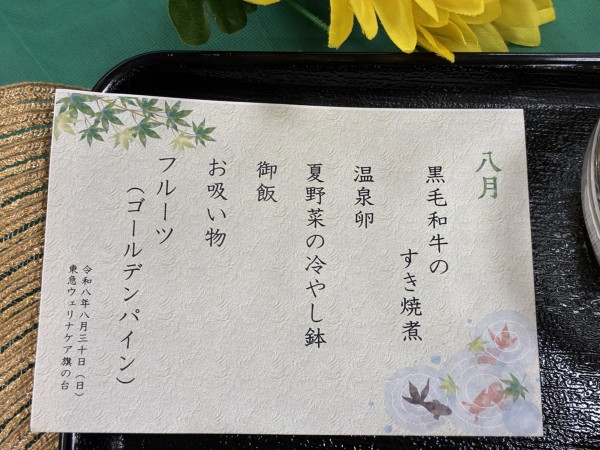 八月
黒毛和牛の
すき焼煮
温泉卵
夏野菜の冷やし鉢
御飯
お吸い物
フルーツ
（ゴールデンパイン）
令和八年八月三十日（日）
東急ウェリナケア旗の台